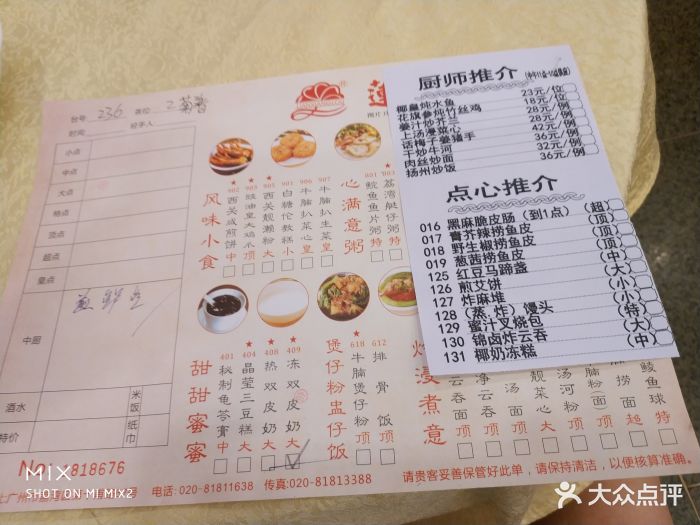 台号 236 茶位 2 菊普
时间 经手人
小点
中点
大点
特点
顶点
超点
皇点
中厨
酒水
米饭
特价
纸巾
No: 1818676
莲
风味小食
902 西关咸煎饼 中
903 豉油皇大鸡爪 顶
905 西关靓濑粉 大
901 白糖伦教糕 小
906 牛腩扒菜心 皇
907 牛腩扒生菜 皇
心满意粥
803 鲮鱼片粥 特
801 荔湾艇仔粥 特
甜甜蜜蜜
401 秘制龟苓膏 中
404 晶莹三豆糕 大
408 热双皮奶 大
409 冻双皮奶 大
煲仔粉盅仔饭
618 牛腩煲仔粉 顶
612 排骨饭 顶
浸煮意
云吞面 顶
净云吞 顶
靓菜心 大
汤河粉 顶
捞面 超
鲮鱼球 特
电话:020-81811638 传真:020-81813388
请贵客妥善保管好此单，请保持清洁，以便核算准确。
厨师推介
椰皇炖水鱼 23元/位
花旗参炖竹丝鸡 18元/位
姜汁炒芥兰 28元/例
上汤浸菜心 28元/例
话梅子姜猪手 42元/例
干炒牛河 36元/例
肉丝炒面 32元/例
扬州炒饭 36元/例
点心推介
016 黑麻脆皮肠 (到1点) (超)
017 青芥辣捞鱼皮 (顶)
018 野生椒捞鱼皮 (顶)
019 葱茜捞鱼皮 (顶)
125 红豆马蹄盏 (中)
126 煎艾饼 (大)
127 炸麻堆 (小)
128 (蒸、炸) 馒头 (小)
129 蜜汁叉烧包 (特)
130 锦卤炸云吞 (大)
131 椰奶冻糕 (中)
MIX
SHOT ON MI MIX2
大众点评